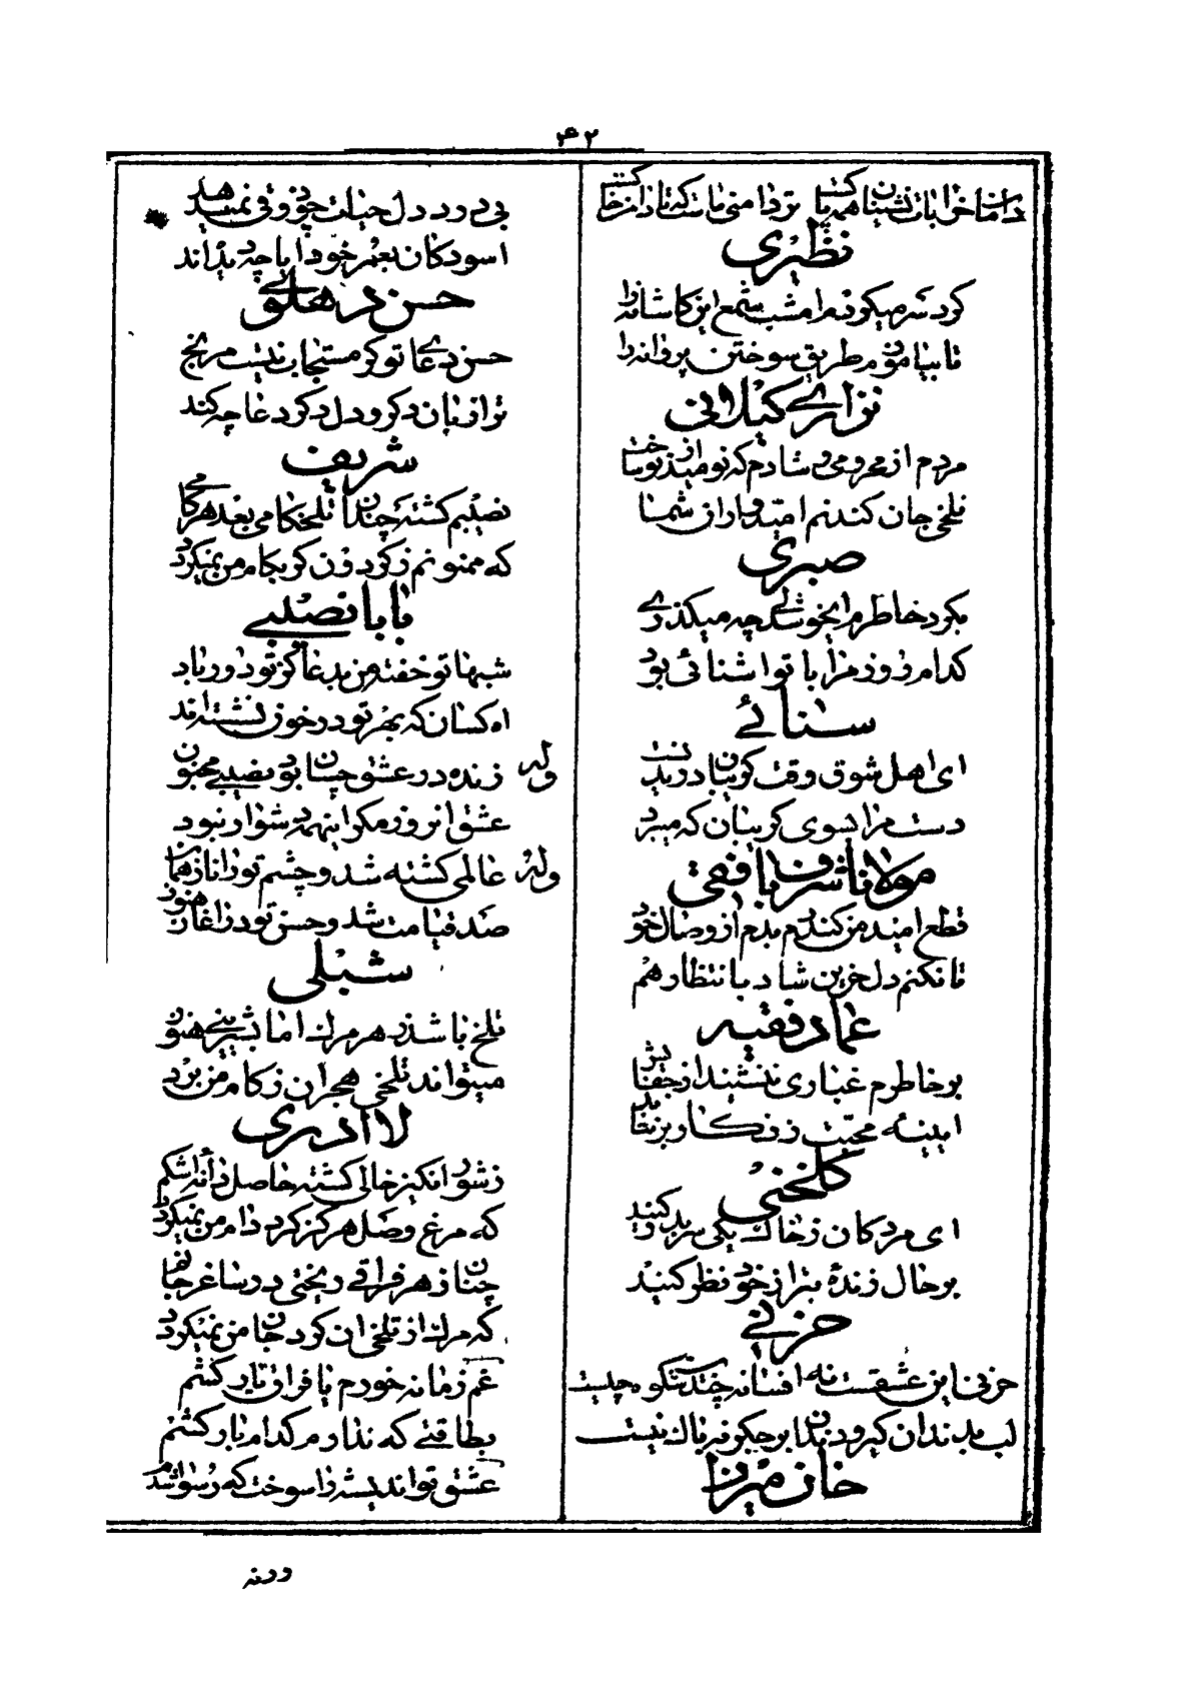 ۴۲
نظیری
کرد سرمیکردم امشب شمع این کاشانه را
تا بیاموزم طریق سوختن پروانه را
نزاری گیلانی
مردم از محرومی و شادم که نومید از تو ساخت
تلخی جان کندنم امیدواران شما
صبری
بگرد خاطرم ای خوشدلی چه میگذری
کدام روز مرا با تو اشنائی بود
سنائے
ای اهل شوق وقت گریبان دریدنست
دست مرا بسوی گریبان که میبرد
مولانا شرف بافقی
قطع امید من کند دم بدم از وصال خود
تا نکنم دل حزین شاد بانتظار هم
عماد فقیه
بر خاطرم غباری ننشیند از جفایش
ایینه محبت زنگار بر نتابد
گلخنی
ای مردگان ز خاک یکی سر بدر کنید
بر حال زندهٔ بتر از خود نظر کنید
حزنی
حزنی این عشقست نه افسانه چندین گوچیست
لب بدندان گیر و دندان بر جگر نه باک نیست
خان میرزا
بی درد دل حیات چو ذوقی نمیدهد
اسودگان بعمر خود ایا چه دیده اند
حسن دهلوی
حسن دعای تو گر مستجاب نیست مرنج
ترا زبان دگر و دل دگر دعا چه کند
شریف
نصیبم گشته چندان تلخکامی بعد هر کامی
که ممنونم ز گردون گر بکام من نمیگردد
بابا نصیبے
شبها تو خفته من بدعا کز تو دور باد
اه کسان که بهر تو در خون نشسته اند
وله زنده در عشق چسان بود نصیبے مجنون
عشق انروز مگر اینهمه دشوار نبود
وله عالمی کشته شد و چشم تو را ناز همان
صد قیامت شد و حسن تو در اغاز هنوز
شبلی
تلخ باشد زهر مرگ اما بشیرینے هنوز
میتواند تلخی هجران ز کام من برد
لا ادری
ز شور انگیز خالی گشته حاصل دانه اشکم
که مرغ وصل هرگز گرد دام من نمیگردد
چنان زهر فراقے ریختی در ساغر جانم
که مرگ از تلخی ان گرد جان من نمیگردد
غم زمانه خورم یا فراق یار کشم
بطاقتے که ندارم کدام بار کشم
عشق تو اندیشه را سوخت که رسوا شدم
ورنه